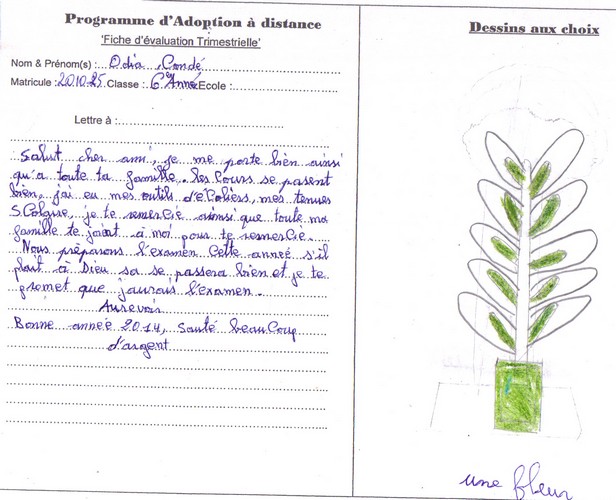 Programme d'Adoption à distance
'Fiche d'évaluation Trimestrielle'
Nom & Prénom(s) : Odia Condé
Matricule : 201025 Classe : 6e Année Ecole :
Lettre à :
Salut cher ami, je me porte bien ainsi
qu'a toute ta famille. les Cours se pasent
bien, j'ai eu mes outils d'éColiers, mes tenues
SColaire, je te remercie ainsi que toute ma
famille te joint à moi pour te remercie.
Nous préparons l'examen Cette année s'il
plait à Dieu sa se passera bien et je te
promet que j'aurais l'examen.
Aurevoir
Bonne année 2014, Santé beauCoup
d'argent
Dessins aux choix
une fleur